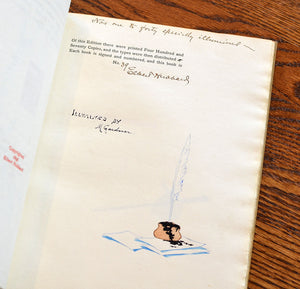 Nos one to forty specially illumined —
Of this Edition there were printed Four Hundred and
Seventy Copies, and the types were then distributed.
Each book is signed and numbered, and this book is
No. 38 Elbert Hubbard
ILLUMINED BY
Gardner